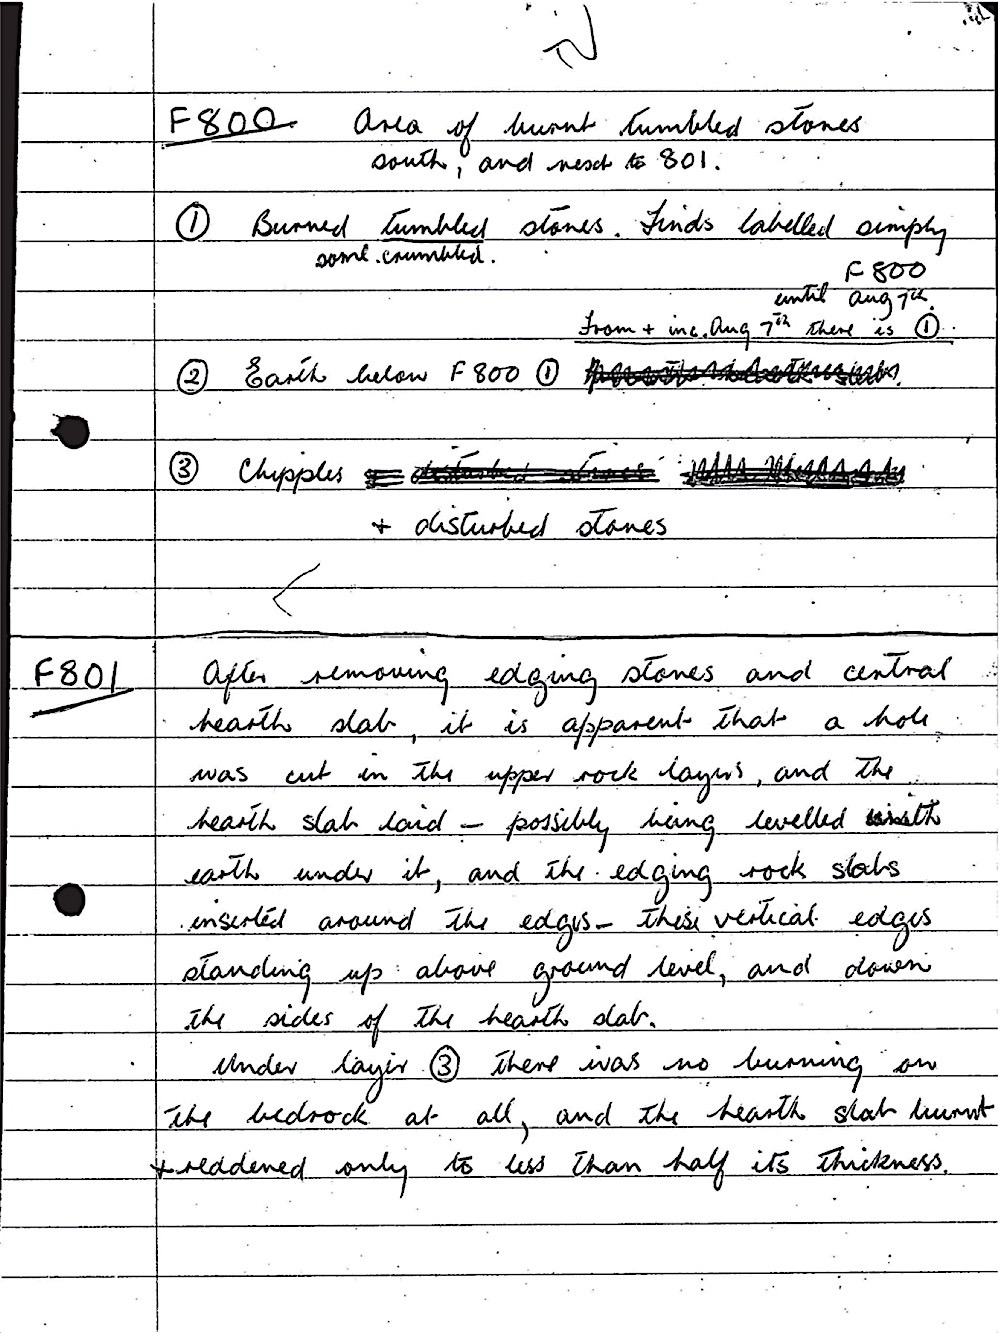 F800 Area of burnt tumbled stones
south, and next to 801.
① Burned tumbled stones. Finds labelled simply
some crumbled.
F800
until Aug 7th.
From + inc. Aug 7th there is ①.
② Earth below F800 ①
③ Chipples
+ disturbed stones
F801 After removing edging stones and central
hearth slab, it is apparent that a hole
was cut in the upper rock layers, and the
hearth slab laid – possibly being levelled with
earth under it, and the edging rock slabs
inserted around the edges – these vertical edges
standing up above ground level, and down
the sides of the hearth slab.
Under layer ③ there was no burning on
the bedrock at all, and the hearth slab burnt
+ reddened only to less than half its thickness.